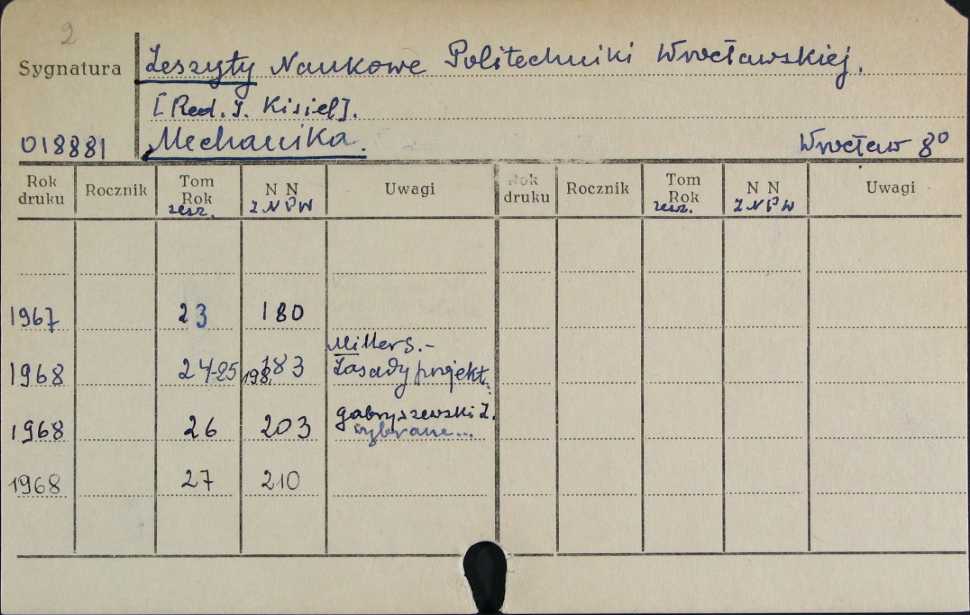 2
Sygnatura
Zeszyty Naukowe Politechniki Wrocławskiej.
[Red. J. Kisiel].
018881 Mechanika. Wrocław 8º
Rok druku Rocznik Tom Rok zesz. N N ZNPW Uwagi Rok druku Rocznik Tom Rok zesz. N N ZNPW Uwagi
1967 23 180
1968 24-25 183 198, Miller S.- Zasady projekt.
1968 26 203 Gabryszewski Z. wybrane...
1968 27 210